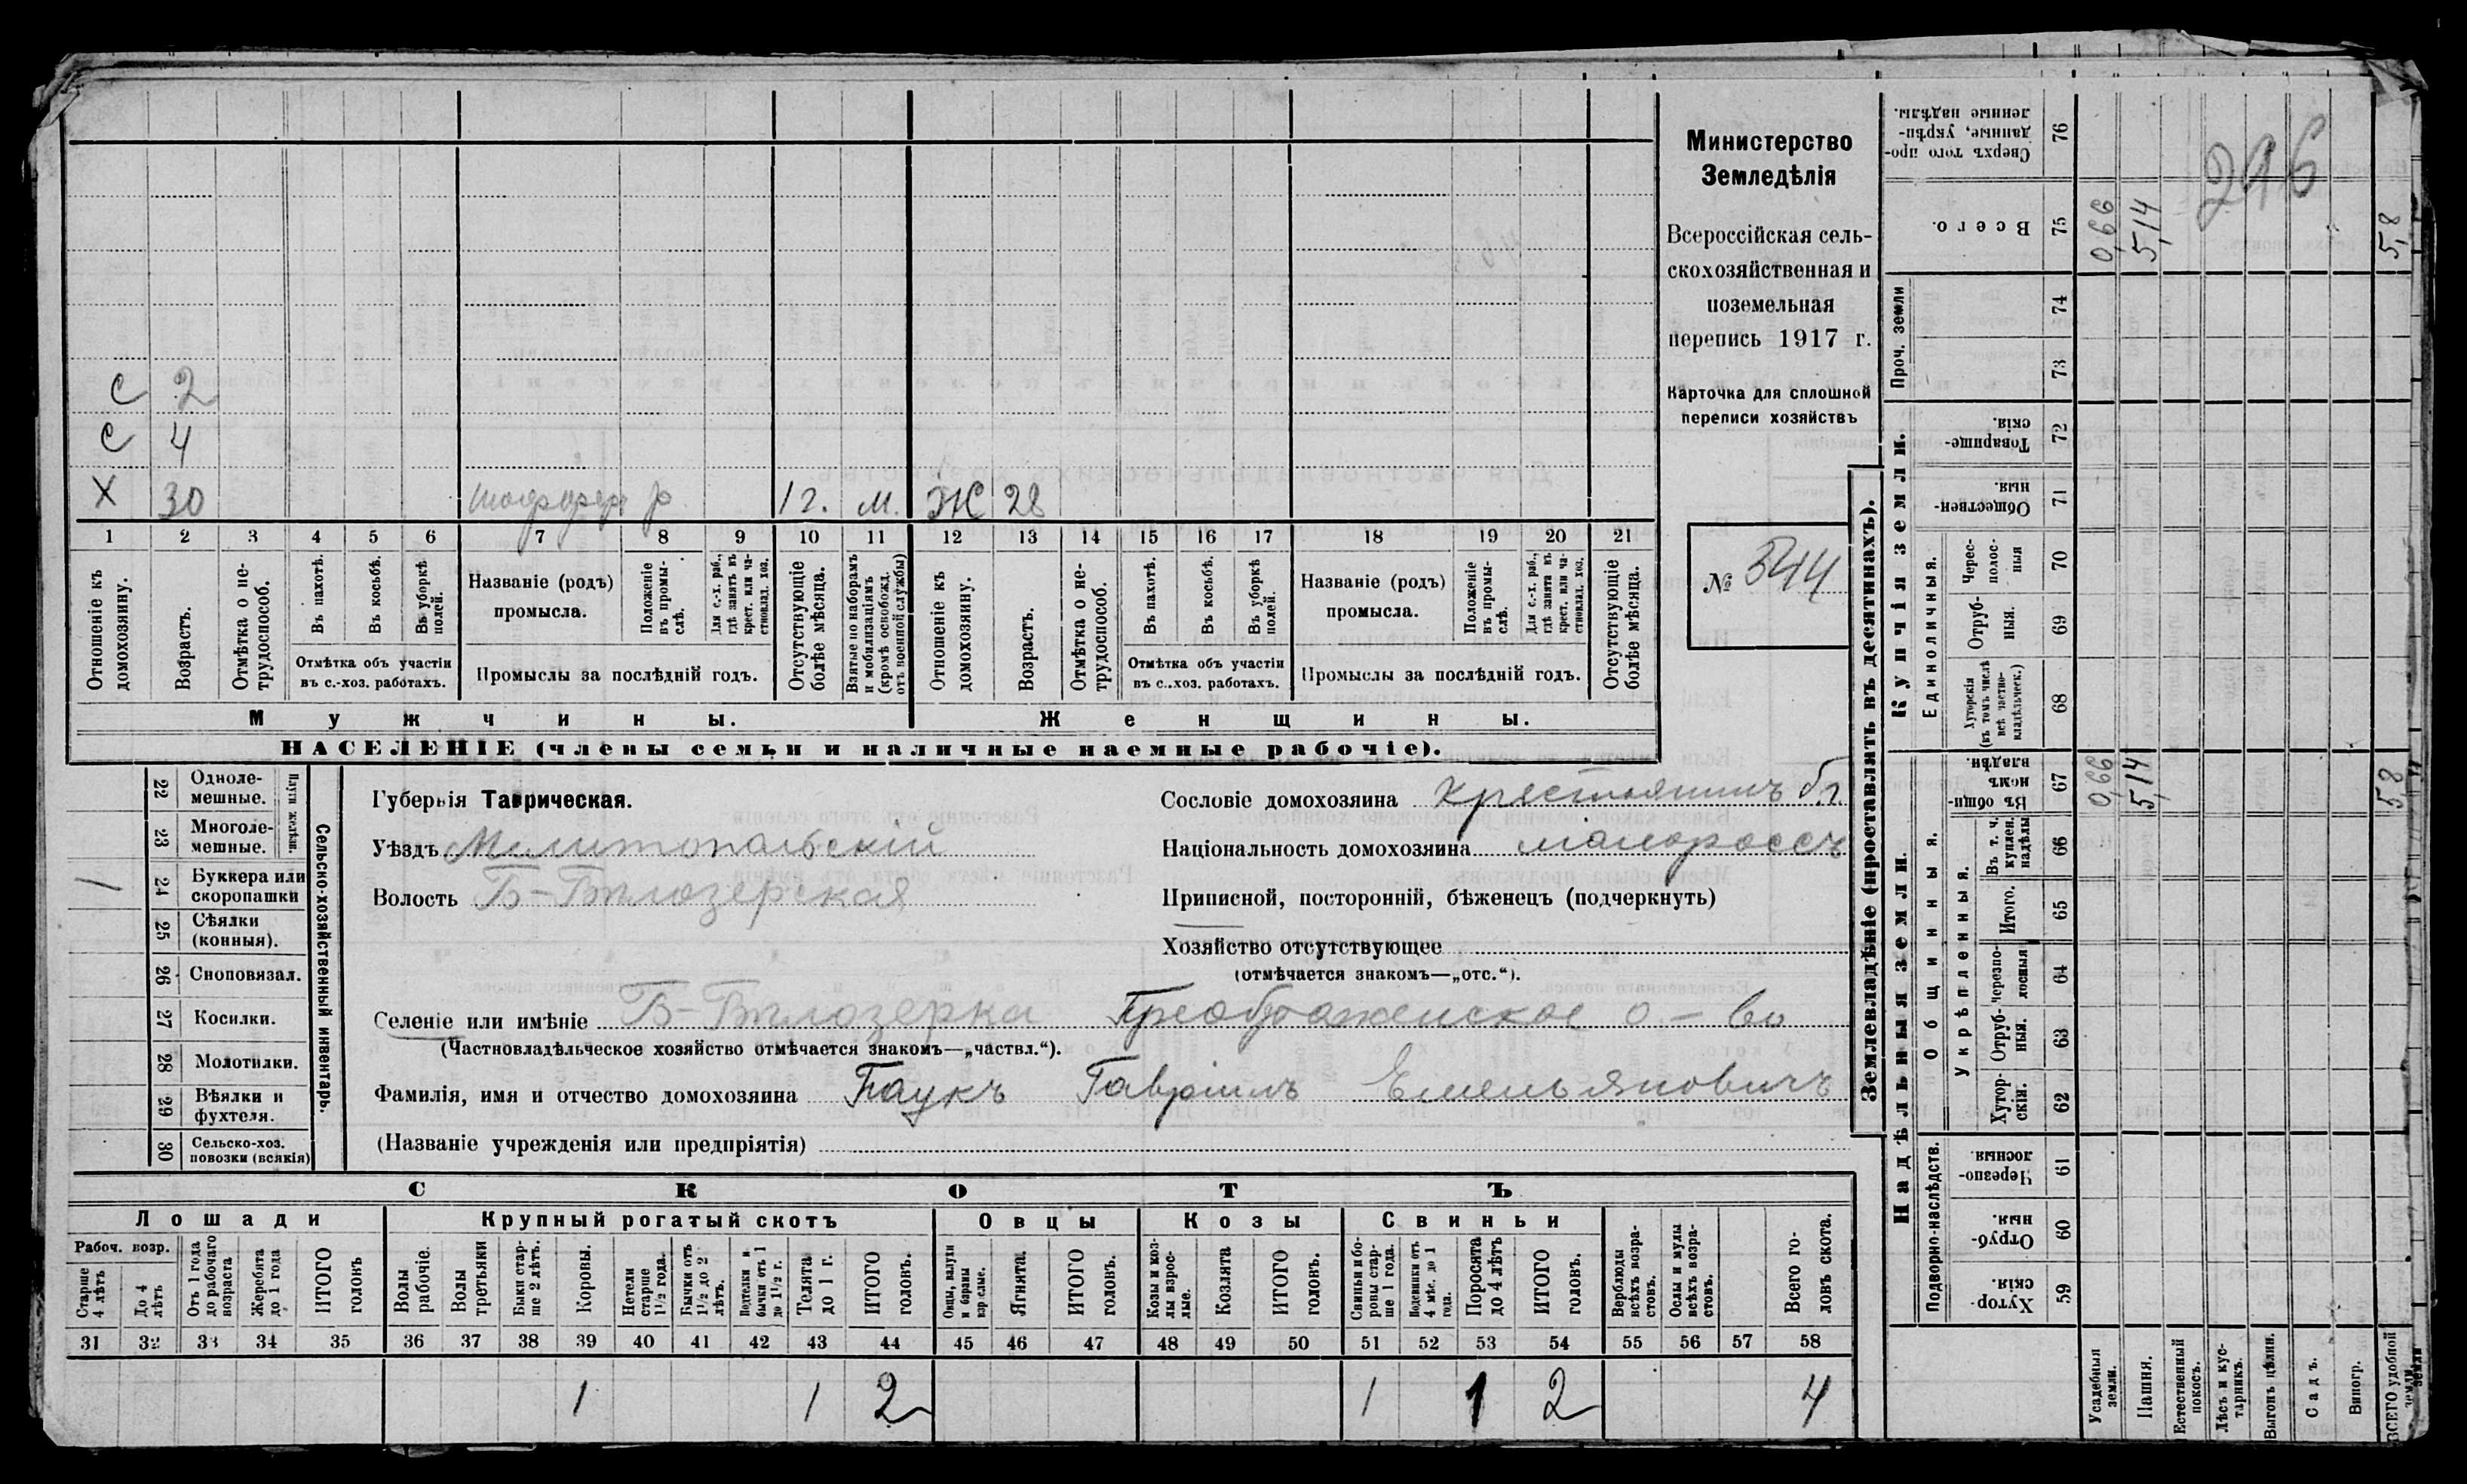 Министерство
Земледѣлія
Всероссійская сель-
скохозяйственная и
поземельная
перепись 1917 г.
Карточка для сплошной
переписи хозяйствъ
№ 544
216
С 2
С 4
Х 30 шоффер р 1 г. м. Ж 28
1 2 3 4 5 6 7 8 9 10 11 12 13 14 15 16 17 18 19 20 21
Отношеніе къ домохозяину.
Возрастъ.
Отмѣтка о не-трудоспособ.
Въ пахотѣ.
Въ косьбѣ.
Въ уборкѣ полей.
Отмѣтка объ участіи
въ с.-хоз. работахъ.
Названіе (родъ)
промысла.
Положеніе въ промы-слѣ.
Для с.-х. раб., гдѣ занятъ въ крест. или ча-стновлад. хоз.
Промыслы за послѣдній годъ.
Отсутствующіе болѣе мѣсяца.
Взятые по наборамъ и мобилизаціямъ (кромѣ освобожд. отъ военной службы)
Отношеніе къ домохозяину.
Возрастъ.
Отмѣтка о не-трудоспособ.
Въ пахотѣ.
Въ косьбѣ.
Въ уборкѣ полей.
Отмѣтка объ участіи
въ с..хоз. работахъ.
Названіе (родъ)
промысла.
Положеніе въ промы-слѣ.
Для с.-х. раб., гдѣ занята въ крест. или ча-стновлад. хоз.
Промыслы за послѣдній годъ.
Отсутствующіе болѣе мѣсяца.
Мужчины.
Женщины.
НАСЕЛЕНІЕ (члены семьи и наличные наемные рабочіе).
22 Одноле-мешные.
23 Многоле-мешные.
Плуги желѣзн.
24 Буккера или скоропашки 1
25 Сѣялки (конныя).
26 Сноповязал.
27 Косилки.
28 Молотилки.
29 Вѣялки и фухтеля.
30 Сельско-хоз. повозки (всякія)
Сельско-хозяйственный инвентарь.
Губернія Таврическая.
Уѣздъ Мелитопольскій
Волость Б-Бѣлозерская
Сословіе домохозяина крестьянинъ
Національность домохозяина малороссъ
Приписной, посторонній, бѣженецъ (подчеркнуть)
Хозяйство отсутствующее
(отмѣчается знакомъ—„отс.“).
Селеніе или имѣніе Б-Бѣлозерка Преображенское о-во
(Частновладѣльческое хозяйство отмѣчается знакомъ—„частвл.“).
Фамилія, имя и отчество домохозяина Паукъ Гавріилъ Емельяновичъ
(Названіе учрежденія или предпріятія)
СКОТЪ
Лошади
Крупный рогатый скотъ
Овцы
Козы
Свиньи
Рабоч. возр.
Старше 4 лѣтъ
До 4 лѣтъ
Отъ 1 года до рабочаго возраста
Жеребята до 1 года
ИТОГО головъ
Волы рабочіе.
Волы третьяки
Быки стар-ше 2 лѣтъ.
Коровы.
Нетели старше 1½ года.
Бычки отъ 1½ до 2 лѣтъ.
бычки отъ 1 до 1½ г.
Телята до 1 г.
ИТОГО головъ.
Овцы, валухи и бараны взрослые.
Ягнята.
ИТОГО головъ.
Козы и коз-лы взрос-лые.
Козлята
ИТОГО головъ.
Свиньи и бо-ровы стар-ше 1 года.
Подсвинки отъ 4 мѣс. до 1 года.
Поросята до 4 лѣтъ
ИТОГО головъ.
Верблюды всѣхъ возра-стовъ.
Ослы и мулы всѣхъ возра-стовъ.
Всего го-ловъ скота.
31 32 33 34 35 36 37 38 39 40 41 42 43 44 45 46 47 48 49 50 51 52 53 54 55 56 57 58
1 1 2 1 1 2 4
Землевладѣніе (проставлять въ десятинахъ).
Надѣльныя земли.
Купчія земли.
Проч. земли
Подворно-наслѣдств.
Общинныя.
Укрѣпленныя.
Единоличныя.
Сверхъ того про-данные, укрѣп-ленные надѣлы. 76
Всего. 75 0,66 5,14 5,8
74
73
Товарище-скія. 72
Обществен-ныя. 71
Черес-полос-ныя 70
Отруб-ныя. 69
Хуторскія (въ томъ числѣ всѣ частно-владѣльческ.) 68
Въ общи-номъ владѣн. 67 0,66 5,14 5,8
Въ т. ч. куплен. надѣлы 66
Итого. 65
Черезпо-лосныя 64
Отруб-ныя. 63
Хутор-скія. 62
Черезпо-лосныя. 61
Отруб-ныя. 60
Хутор-скія. 59
Усадебныя земли.
Пашня.
Естественный покосъ.
Лѣсъ и кус-тарникъ.
Выгонъ цѣлин.
Садъ.
Виногр.
ВСЕГО удобной земли